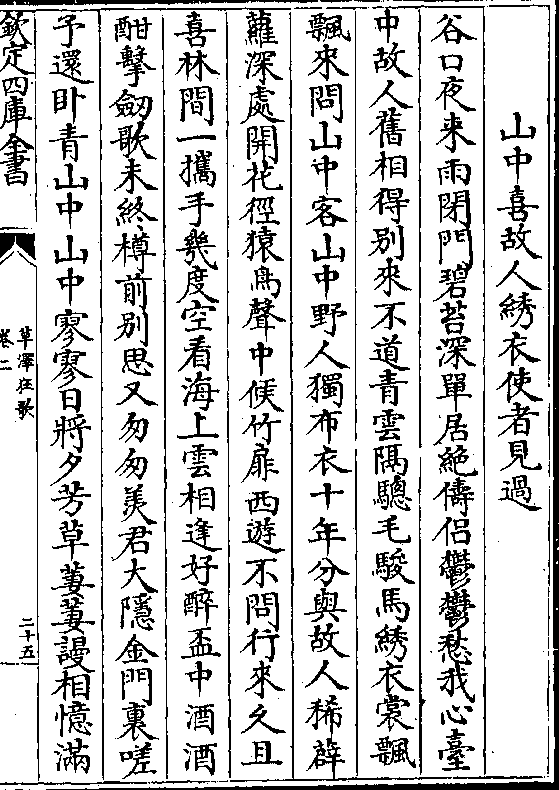 山中喜故人綉衣使者見過
谷口夜来雨閉門碧苔深單居絶儔侣鬱鬱愁我心臺
中故人舊相得别來不道青雲隔驄毛駿馬綉衣裳飄
飄來問山中客山中野人獨布衣十年分與故人稀薜
蘿深處開花徑猿鳥聲中候竹扉西遊不問行來久且
喜林間一攜手幾度空看海上雲相逢好醉盃中酒酒
酣擊劔歌未終樽前别思又匆匆羡君大隱金門裏嗟
予還卧青山中山中寥寥日將夕芳草萋萋謾相憶滿
欽定四庫全書
草澤狂歌
卷二
二十五